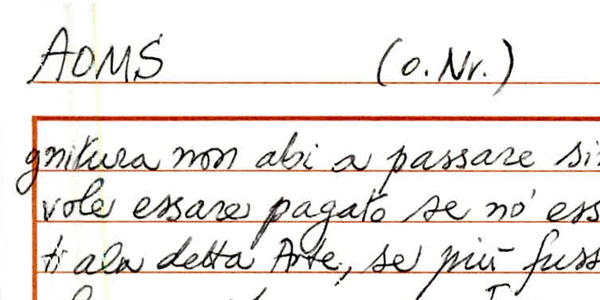 AOMS (o.Nr.)
gnitura non abi a passare si
vole essare pagato se no' ess
ti ala detta Arte, se più fuss